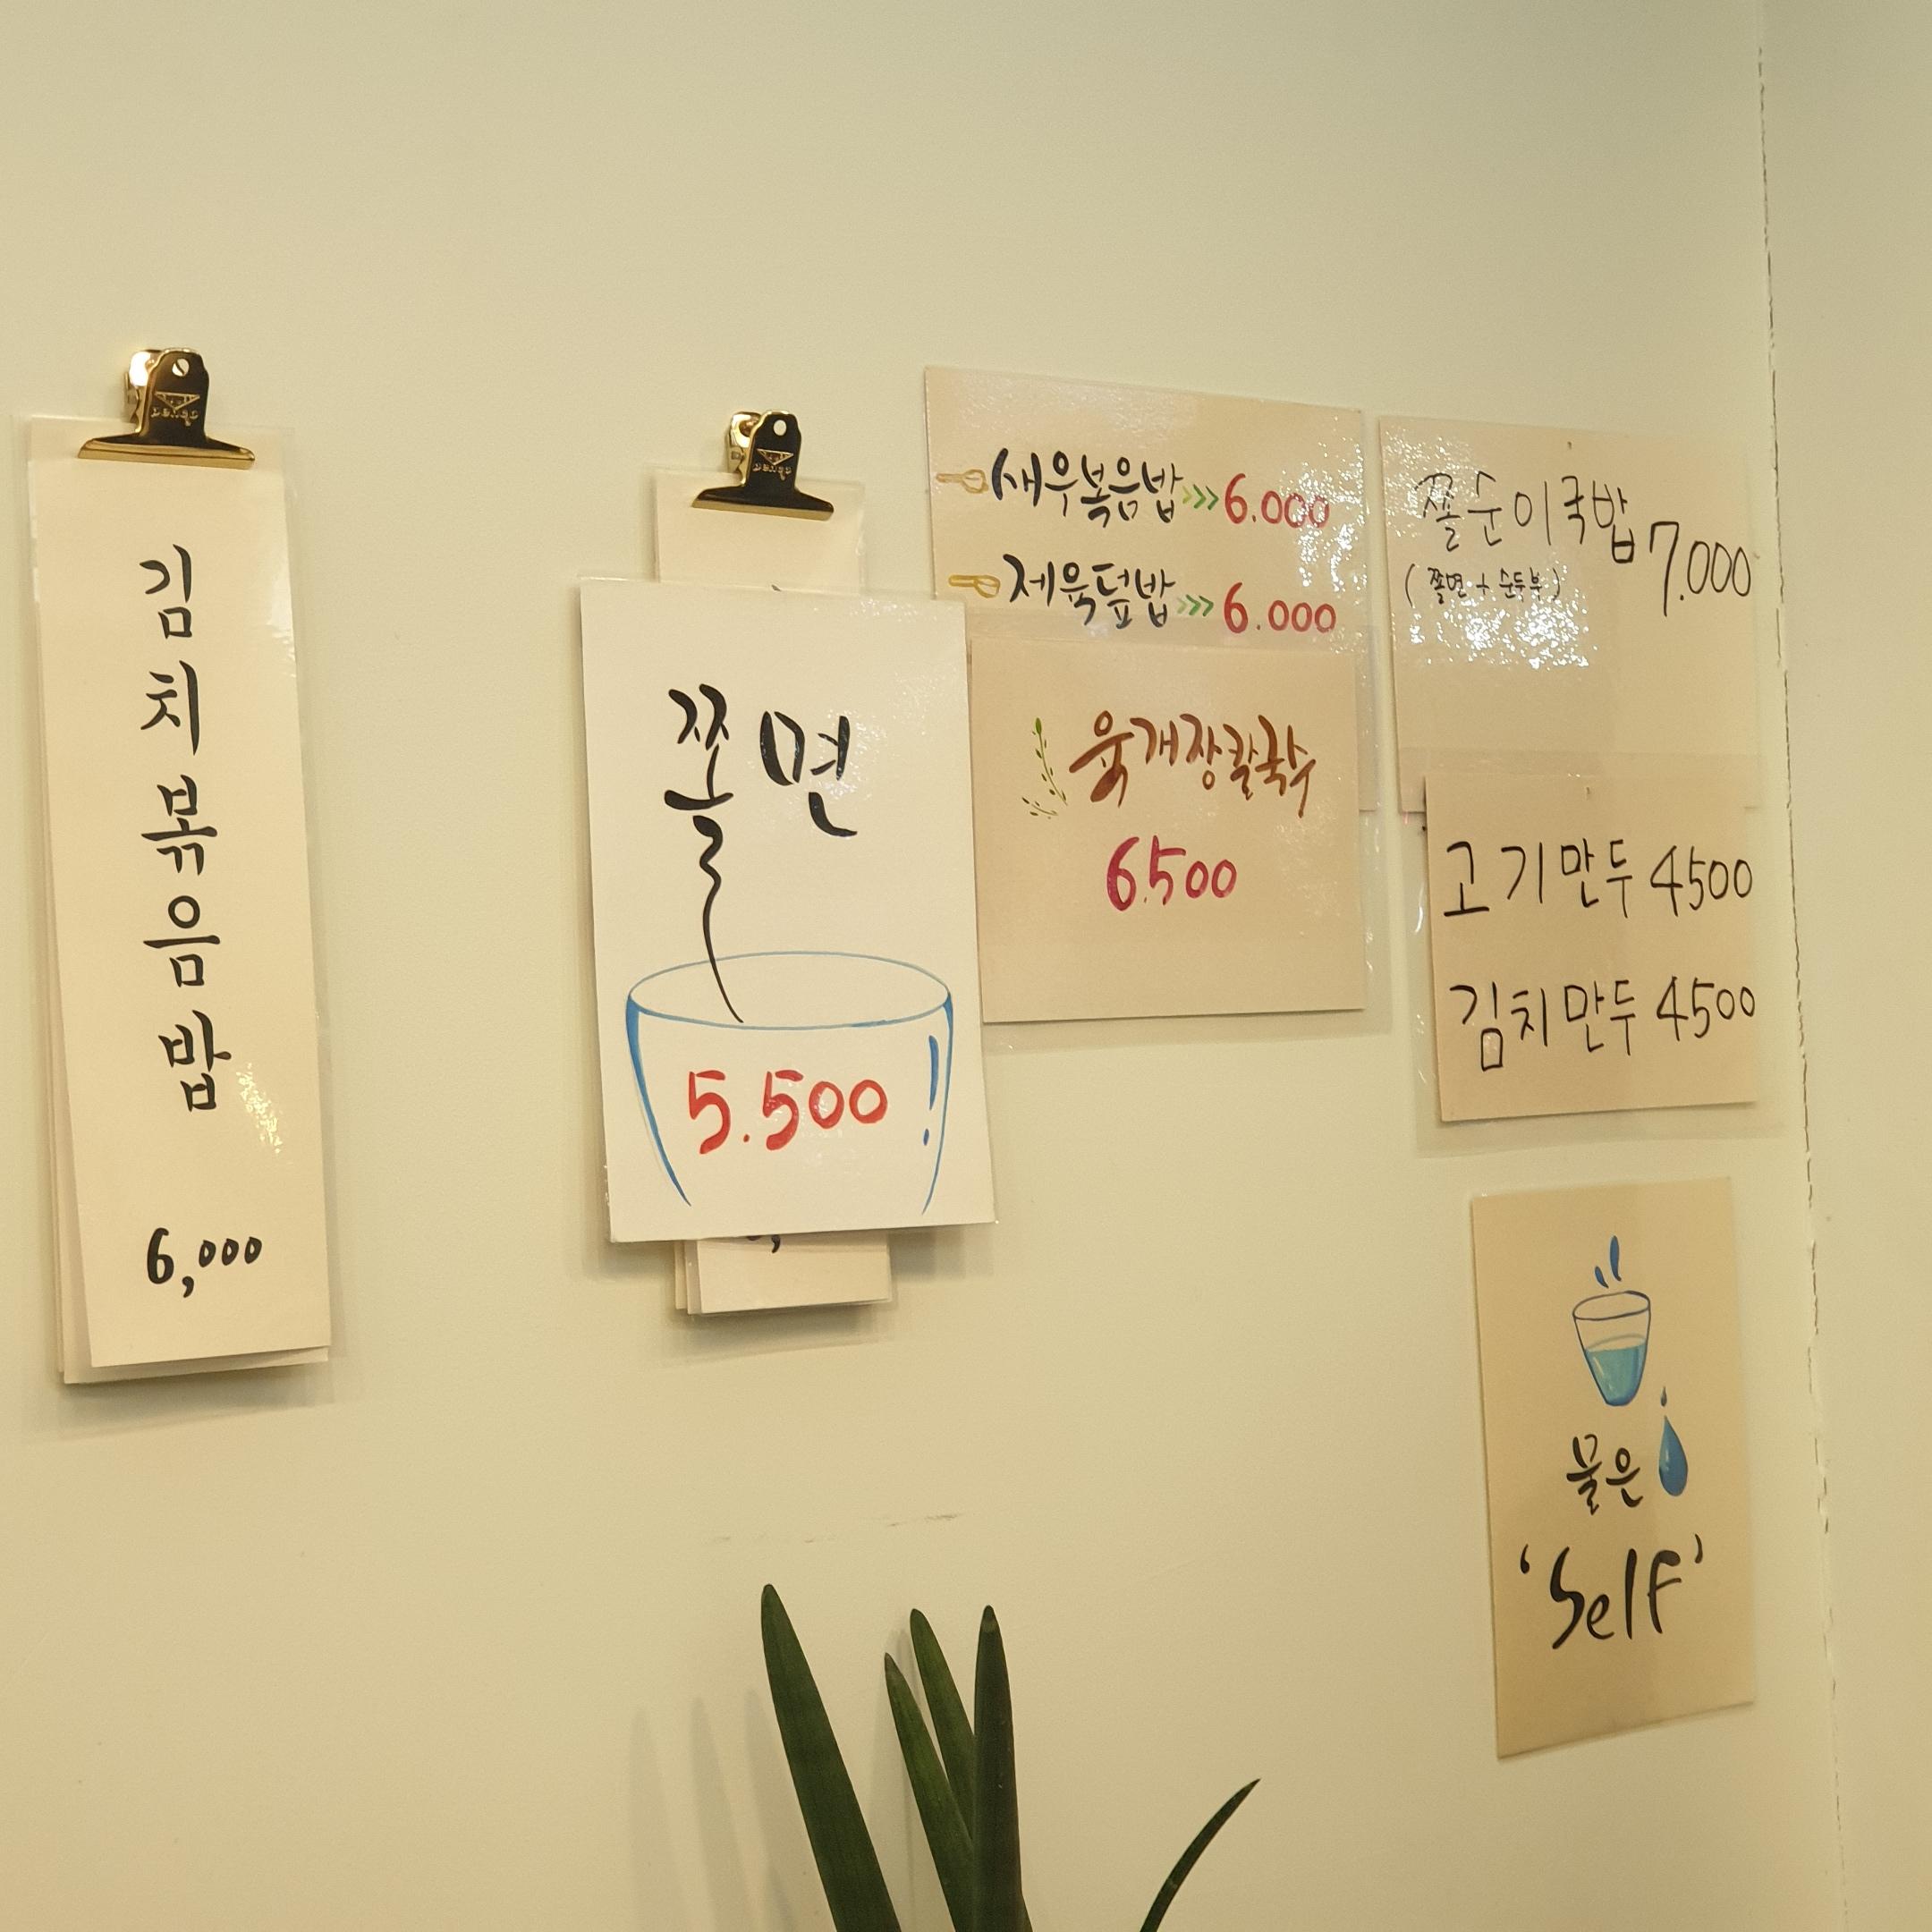 김
치
볶
음
밥
6,000
쫄면
5.500
새우볶음밥 >>> 6.000
제육덮밥 >>> 6.000
육개장칼국수
6.500
쫄순이국밥 7.000
(쫄면 + 순두부)
고기만두 4500
김치만두 4500
물은
'Self'